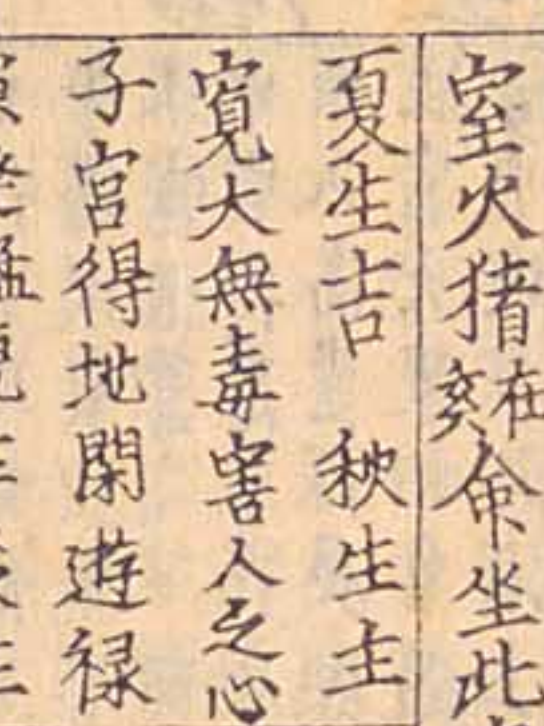 室火猪在亥命坐此
夏生吉 秋生主
寛大無毒害人之心
子宮得地閑遊禄